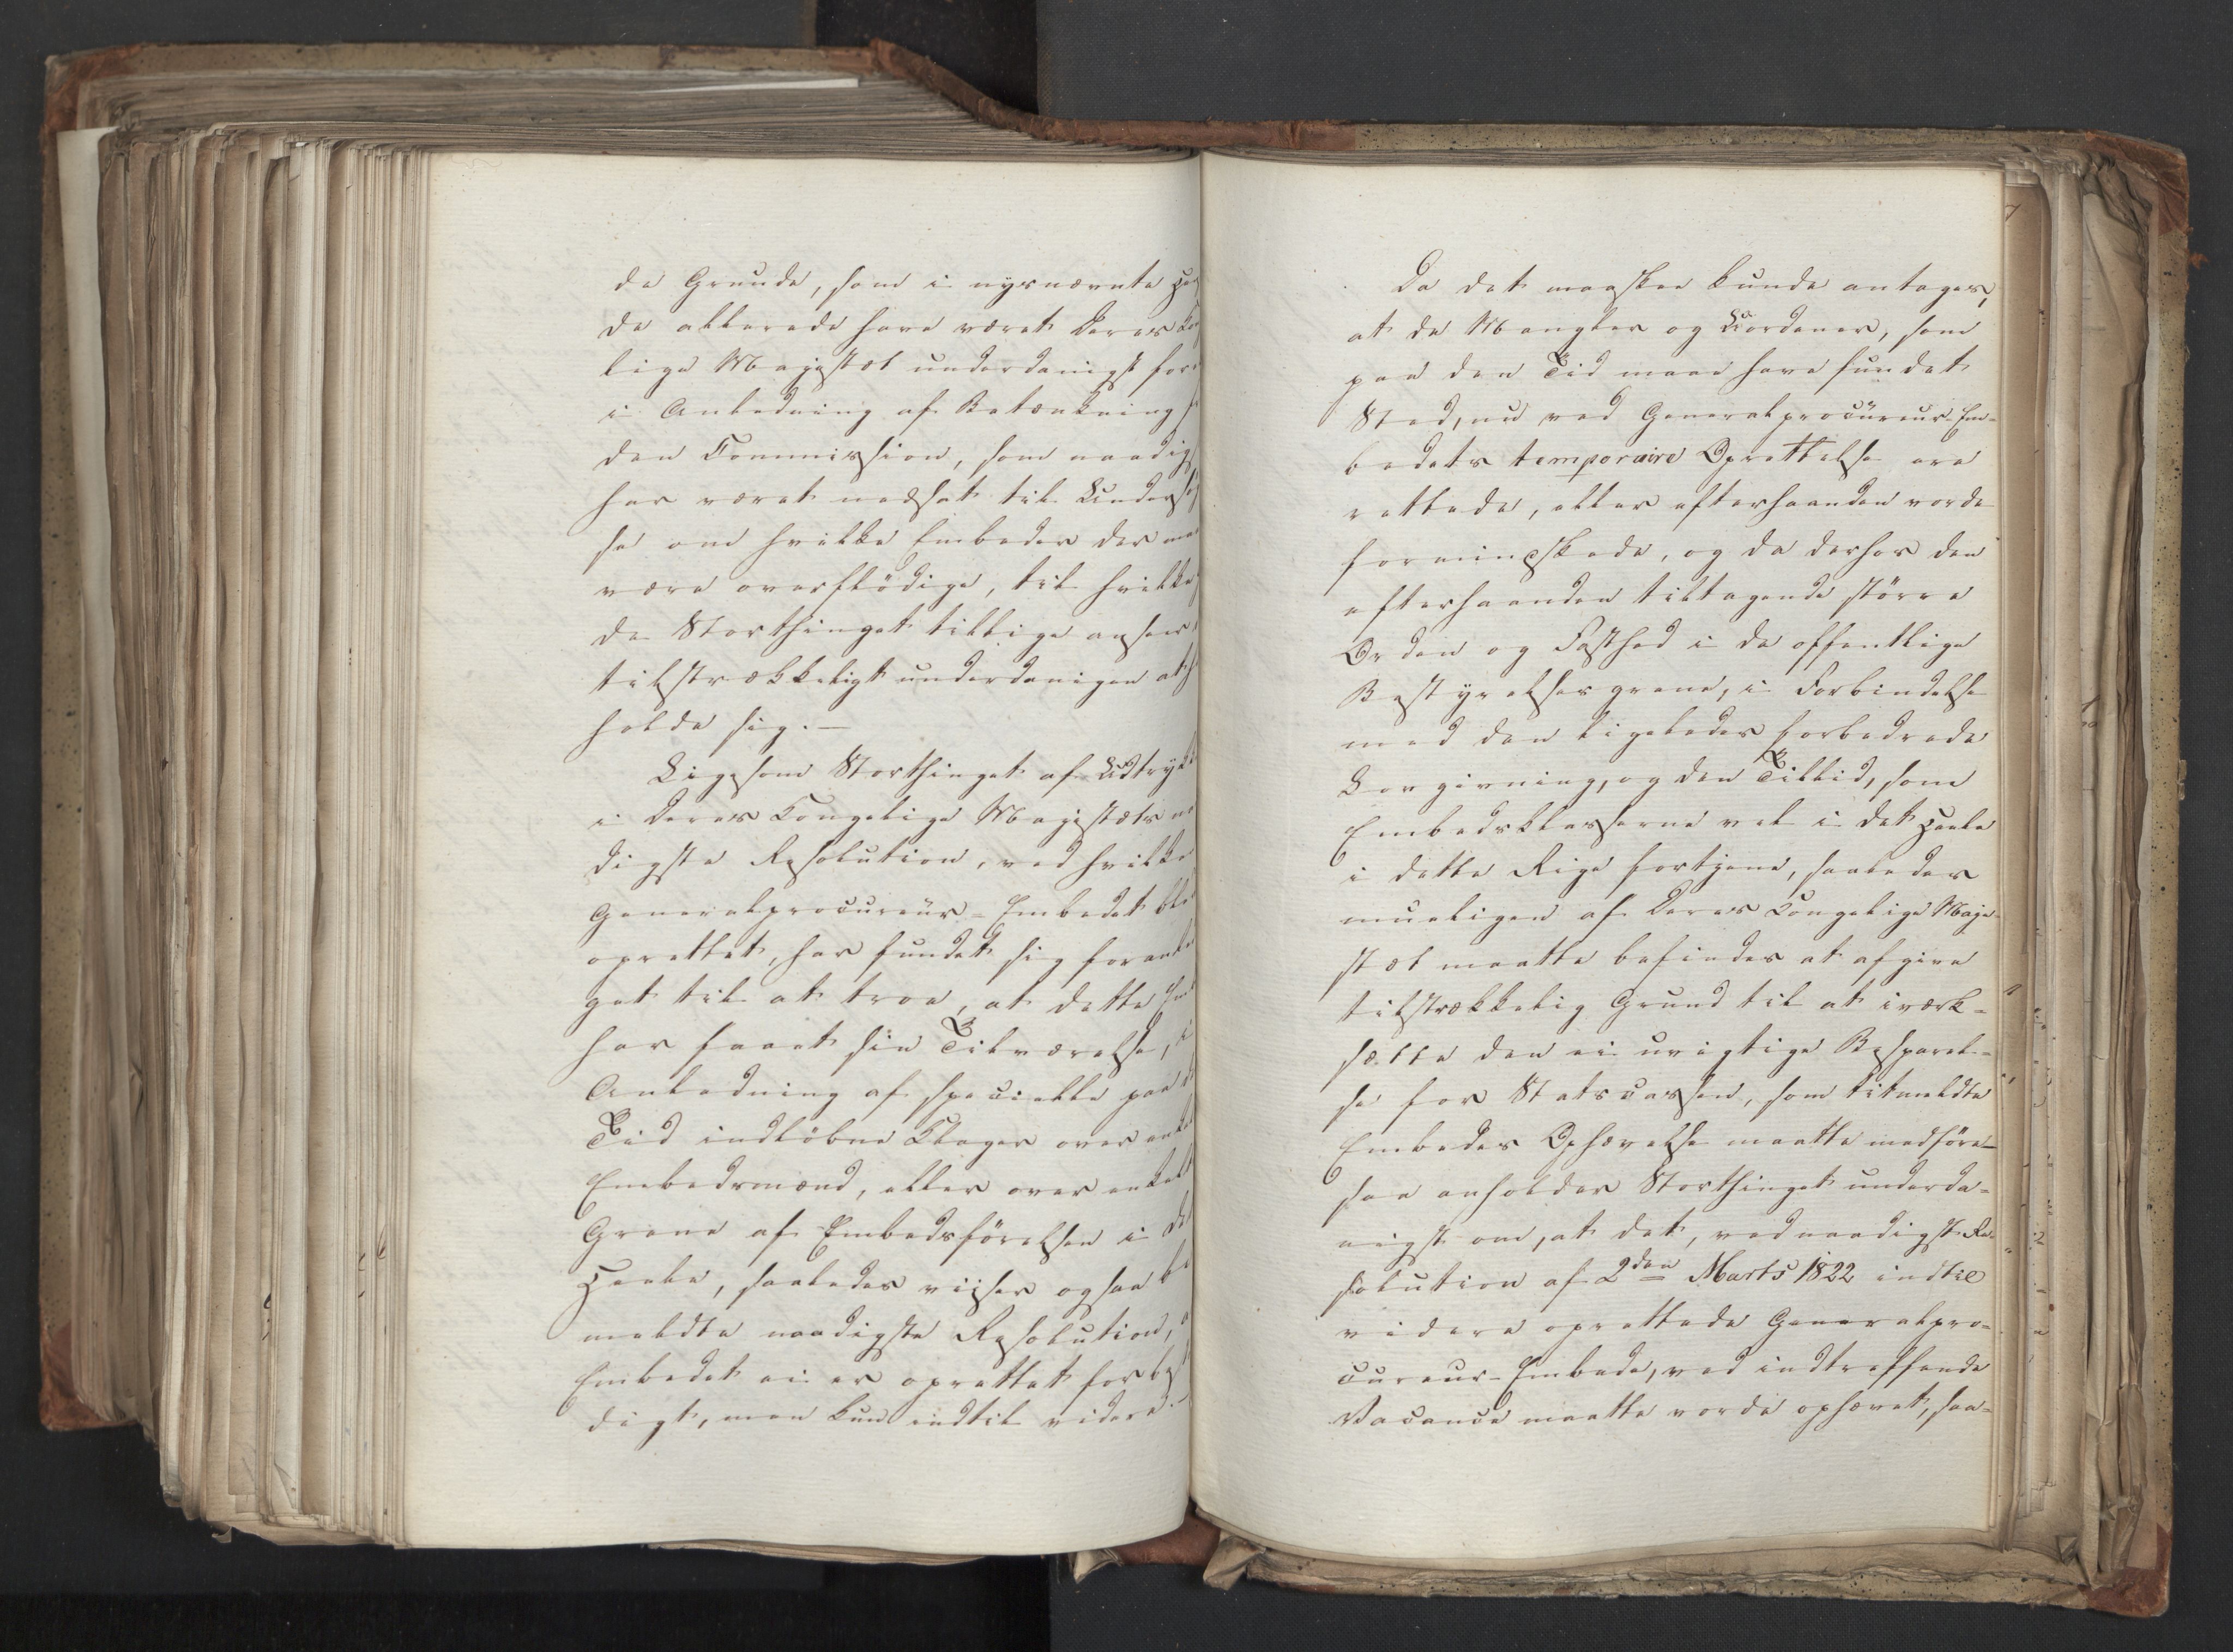 de Grunde, som i nysnævnte Hen
de allerede have været Deres Kon
lige Majestæt underdanigst fore
i Anledning af Betænkning fra
den Commission, som naadigst
har været nedsat til Undersøgel
se om hvilke Embeder der maatte
være overflödige, til hvilke
de Storthinget tillige anseer
tilstrækkeligt underdanigen at hen
holde sig. —
Ligesom Storthinget af Udtrykket
i Deres Kongelige Majestæts naa
digste Resolution, ved hvilken
Generalprocureur-Embedet blev
oprettet, har fundet sig foranledi
get til at troe, at dette Embede
har faaet sin Tilværelse, i
Anledning af specielle paa den
Tid indløbne Klager over enkelte
Embedsmænd, eller over enkelte
Grene af Embedsförelsen i det
Heele, saaledes viser ogsaa be
meldte naadigste Resolution, at
Embedet ei er oprettet for bestan
digt, men kun indtil videre. —
Da det maaskee kunde antages,
at de Mangler og Uordener, som
paa den Tid maae have fundet
Sted, nu ved Generalprocureur-Em-
bedets temporaire Oprettelse ere
rettede, eller efterhaanden vorde
formindskede, og da derhos den
efterhaanden tiltagende större
Orden og Fasthed i de offentlige
Bestyrelsesgrene, i Forbindelse
med den ligeledes forbedrede
Lovgivning, og den Tillid, som
Embedsklasserne vel i det Heele
i dette Rige fortjene, saaledes
mueligen af Deres Kongelige Maje-
stæt maatte befindes at afgive
tilstrækkelig Grund til at iværk-
sætte den ei uvigtige Besparel-
se for Statscassen, som titmeldte
Embedes Ophævelse maatte medföre —
saa anholder Storthinget underda-
nigst om, at det, ved naadigst Re-
solution af 2den Marts 1822 indtil
videre oprettede Generalpro-
cureur-Embede, ved indtreffende
Vacance maatte vorde ophævet, saa-